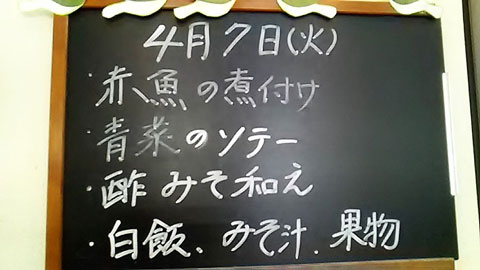 4月7日(火)
・赤魚の煮付け
・青菜のソテー
・酢みそ和え
・白飯、みそ汁、果物